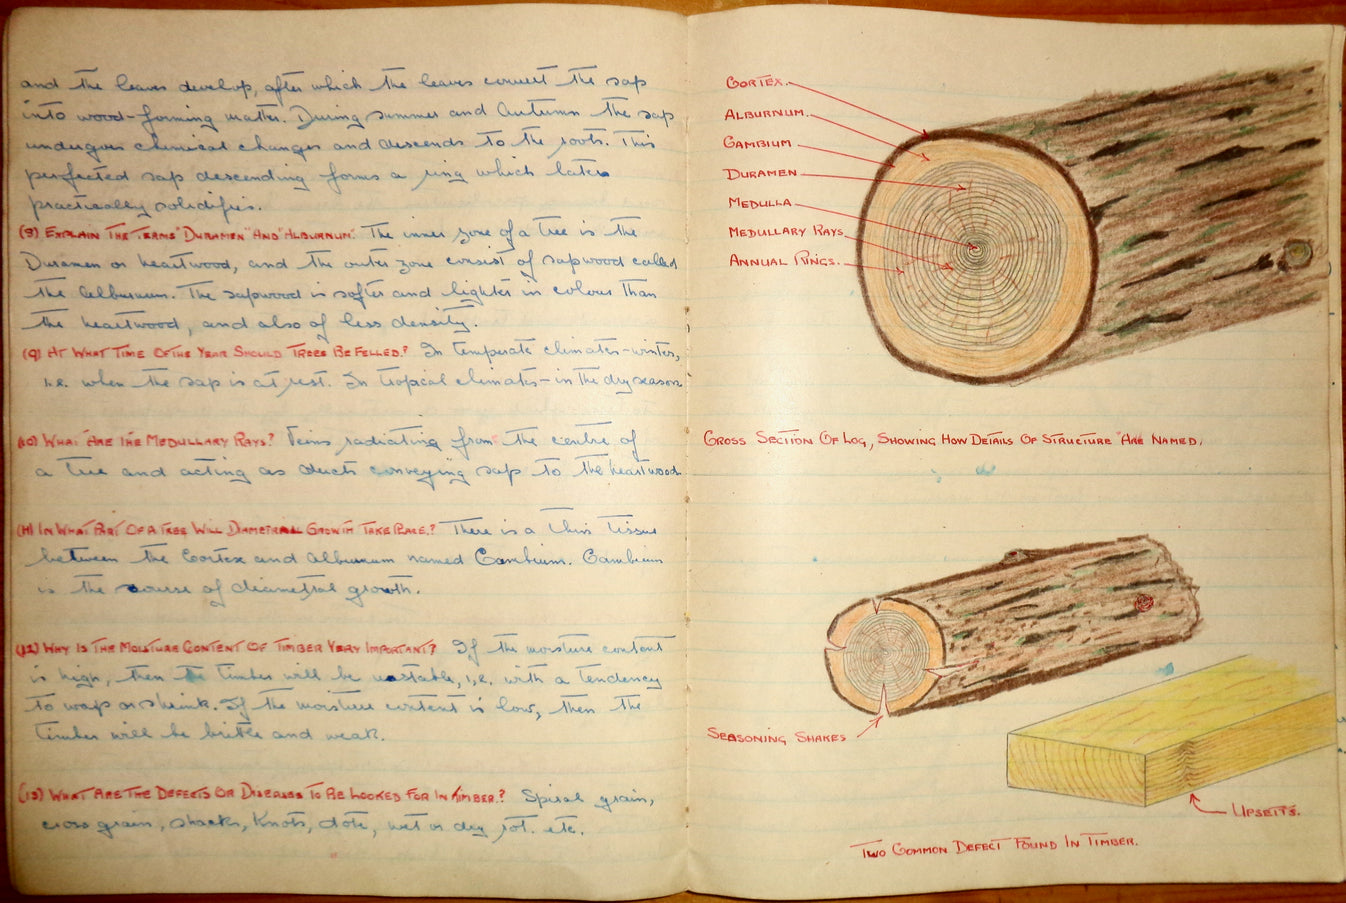 and the leaves develop, after which the leaves convert the sap
into wood-forming matter. During summer and Autumn the sap
undergoes chemical changes and descends to the roots. This
perfected sap descending forms a ring which later
practically solidifies.
(8) EXPLAIN THE TERMS "DURAMEN" AND "ALBURNUM". The inner zone of a tree is the
Duramen or heartwood, and the outer zone consist of sapwood called
the Alburnum. The sapwood is softer and lighter in colour than
the heartwood, and also of less density.
(9) AT WHAT TIME OF THE YEAR SHOULD TREES BE FELLED? In temperate climates-winter,
i.e. when the sap is at rest. In tropical climates-in the dry season
(10) WHAT ARE THE MEDULLARY RAYS? Veins radiating from the centre of
a tree and acting as ducts conveying sap to the heartwood
(11) IN WHAT PART OF A TREE WILL DIAMETRAL GROWTH TAKE PLACE? There is a thin tissue
between the Cortex and Alburnum named Cambium. Cambium
is the source of diametral growth.
(12) WHY IS THE MOISTURE CONTENT OF TIMBER VERY IMPORTANT? If the moisture content
is high, then the timber will be unstable, i.e. with a tendency
to warp or shrink. If the moisture content is low, then the
timber will be brittle and weak.
(13) WHAT ARE THE DEFECTS OR DISEASES TO BE LOOKED FOR IN TIMBER? Spiral grain,
cross grain, shakes, Knots, dote, wet or dry rot. etc.
CORTEX.
ALBURNUM.
CAMBIUM
DURAMEN
MEDULLA
MEDULLARY RAYS
ANNUAL RINGS.
CROSS SECTION OF LOG, SHOWING HOW DETAILS OF STRUCTURE ARE NAMED.
SEASONING SHAKES
UPSETTS.
TWO COMMON DEFECT FOUND IN TIMBER.